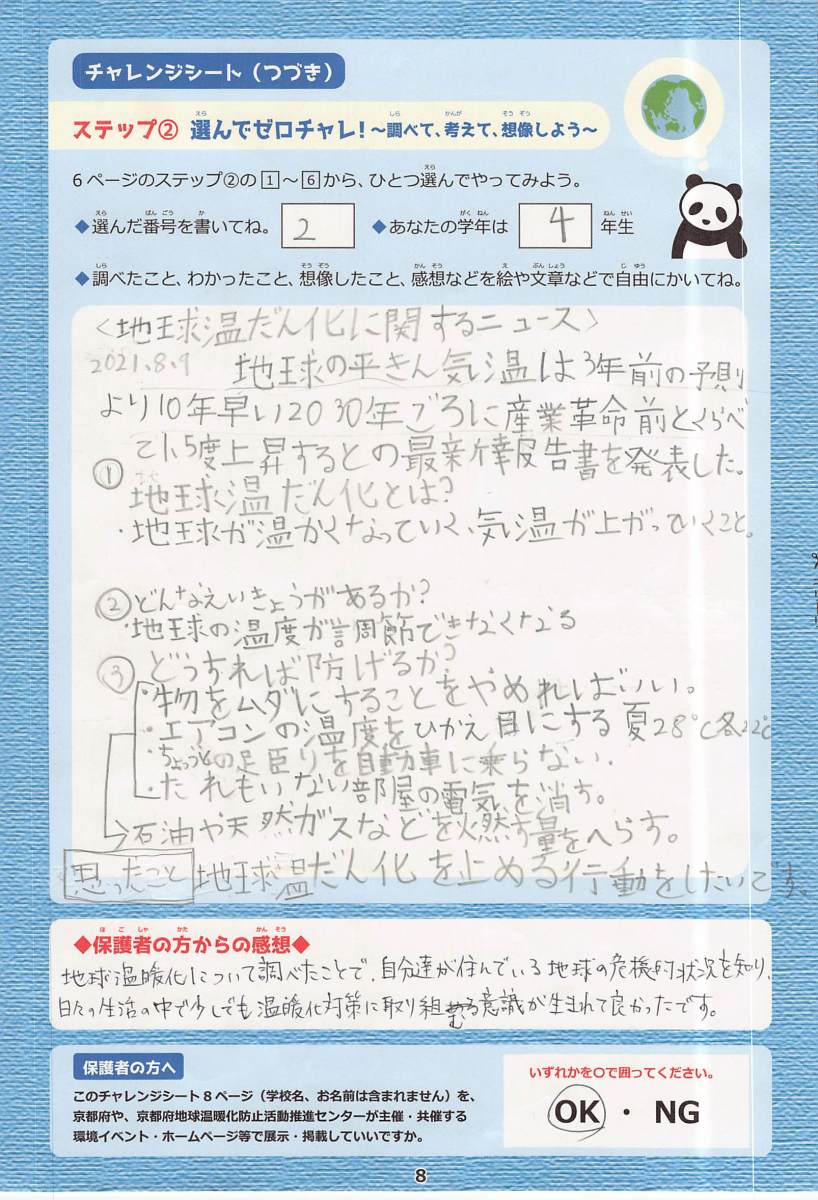 チャレンジシート（つづき）
ステップ② 選んでゼロチャレ！～調べて、考えて、想像しよう～
6ページのステップ②の1～6から、ひとつ選んでやってみよう。
◆選んだ番号を書いてね。 2 ◆あなたの学年は 4 年生
◆調べたこと、わかったこと、想像したこと、感想などを絵や文章などで自由にかいてね。
〈地球温だん化に関するニュース〉
2021.8.9 地球の平きん気温は3年前の予測
より10年早い2030年ごろに産業革命前とくらべ
て1.5度上昇するとの最新報告書を発表した。
① 地球温だん化とは?
・地球が温かくなっていく、気温が上がっていくこと。
② どんなえいきょうがあるか?
・地球の温度が調節できなくなる
③ どうすれば防げるか?
・物をムダにすることをやめればいい。
・エアコンの温度をひかえ目にする 夏28℃冬22℃
・ちょっとの距りを自動車に乗らない.
・だれもいない部屋の電気を消す。
→石油や天然ガスなどを燃す量をへらす。
思ったこと 地球温だん化を止める行動をしたいです。
◆保護者の方からの感想◆
地球温暖化について調べたことで、自分達が住んでいる地球の危機的状況を知り、
日々の生活の中で少しでも温暖化対策に取り組む意識が生まれて良かったです。
保護者の方へ
このチャレンジシート8ページ（学校名、お名前は含まれません）を、
京都府や、京都府地球温暖化防止活動推進センターが主催・共催する
環境イベント・ホームページ等で展示・掲載していいですか。
いずれかを○で囲ってください。
OK ・ NG
8